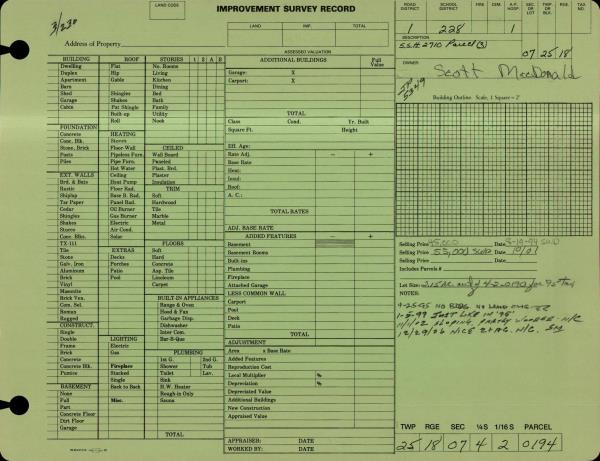 IMPROVEMENT SURVEY RECORD
3/230
LAND CODE
Address of Property
LAND IMP. TOTAL
ASSESSED VALUATION
ROAD DISTRICT SCHOOL DISTRICT FIRE CEM. A.P. HOSP. SEC. TWP. OR BLK. RGE. TAX NO.
1 228 1
DESCRIPTION
S.S.H. 2710 Parcel (3)
07 25 18
OWNER
Scott MacDonald
Building Outline. Scale, 1 Square = 2'
BUILDING ROOF STORIES 1 2 A B
Dwelling Flat No. Rooms
Duplex Hip Living
Apartment Gable Kitchen
Barn Dining
Shed Shingles Bed
Garage Shakes Bath
Cabin Pat Shingle Family
Built-up Utility
Roll Nook
FOUNDATION
Concrete HEATING
Conc. Blk. Stoves CEILED
Stone, Brick Floor-Wall Wall Board
Posts Pipeless Furn. Paneled
Piles Pipe Furn. Plast. Brd.
Hot Water Plaster
EXT. WALLS Ceiling Insulation
Brd. & Bats Heat Pump TRIM
Rustic Floor Rad. Soft
Shiplap Base B. Rad. Hardwood
Tar Paper Panel Rad. Tile
Cedar Oil Burner Marble
Shingles Gas Burner Metal
Shakes Electric
Stucco Air Cond.
Conc. Blks. Solar FLOORS
TX-111 Soft
Tile EXTRAS Hard
Stone Decks Concrete
Galv. Iron Porches Asp. Tile
Aluminum Patio Linoleum
Brick Pool Carpet
Vinyl
Masonite
Brick Ven. BUILT-IN APPLIANCES
Com. Sel. Range & Oven
Roman Hood & Fan
Rugged Garbage Disp.
CONSTRUCT. Dishwasher
Single Inter Com.
Double LIGHTING Bar-B-Que
Frame Electric
Brick Gas PLUMBING
Concrete 1st G. 2nd G.
Concrete Blk. Fireplace Shower Tub
Pumice Stacked Toilet Lav.
Single Sink
BASEMENT Back to Back H.W. Heater
None Rough-in Only
Full Misc. Sauna
Part
Concrete Floor
Dirt Floor
Garage
TOTAL
ADDITIONAL BUILDINGS Full Value
Garage: X
Carport: X
TOTAL
Class Cond. Yr. Built
Square Ft. Height
Eff. Age:
Rate Adj. - +
Base Rate
Heat:
Insul:
Roof:
A. C.:
TOTAL RATES
ADJ. BASE RATE
ADDED FEATURES - +
Basement
Basement Rooms
Built-ins
Plumbing
Fireplace
Attached Garage
LESS COMMON WALL
Carport
Pool
Deck
Patio
TOTAL
ADJUSTMENT
Area x Base Rate
Added Features
Reproduction Cost
Local Multiplier %
Depreciation %
Depreciated Value
Additional Buildings
New Construction
Appraised Value
APPRAISER: DATE
WORKED BY: DATE
Selling Price 45,000 Date 8-19-94 SOLD
Selling Price 55,000 Sold Date 10/01
Includes Parcels #
Lot Size: 2.15 AC
NOTES:
9-25-95 NO BLDG NO LAND CHG
1-5-99 JUST LIKE IN "95"
11/1/02 SLOPING, PARTLY WOODED - N/C
12/29/06 NICE 2+AC. N/C.
TWP RGE SEC ¼S 1/16 S PARCEL
25 18 07 4 2 0194